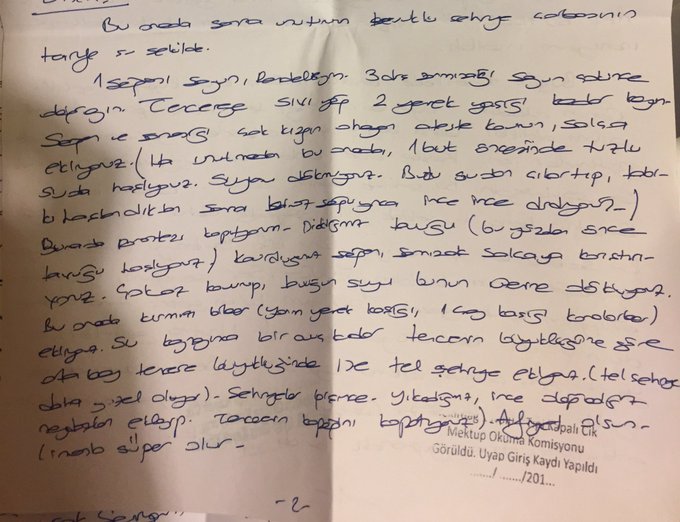 Bu arada sana unuttum tavuklu şehriye çorbasının
tarifi şu şekilde.
1 soğanı soyun, Rendeleyin. 3 diş sarımsağı soyun ince
doğrayın. Tencereye sıvı yağ 2 yemek kaşığı kadar koyun
Soğan ve sarımsağı çok kızgın olmayan ateşte kavurun, salça
ekliyoruz. (Ha unutmadan bu arada, 1 but öncesinde tuzlu
suda haşlıyoruz. Suyunu dökmüyoruz. Butu sudan çıkartıp, tabi-
ki haşlandıktan sonra ince ince didiyoruz-)
Burada parantezi kapatıyorum- Didiğimiz tavuğu (bu yüzden önce
tavuğu haşlıyoruz) kavurduğumuz soğan, sarımsak salçaya karıştırı-
yoruz. Çok az kavurup, tavuğun suyu bunun üzerine döküyoruz.
Bu arada kırmızı biber (yarım yemek kaşığı, 1 çay kaşığı karabiber)
ekliyoruz. Su kaynayınca bir avuç kadar tencerenin büyüklüğüne göre
orta boy tencere büyüklüğünde ise tel şehriye ekliyoruz. (tel şehriye
daha güzel oluyor)- Şehriyeler pişince- Yıkadığımız, ince doğradığımız
maydanozları ekleyip. Tencerenin kapağını kapatıyoruz) Afiyet olsun-
(inanılmaz süper olur-
Kapalı Cik
Mektup Okuma Komisyonu
Görüldü. Uyap Giriş Kaydı Yapıldı
....../ ....../201...
-2-